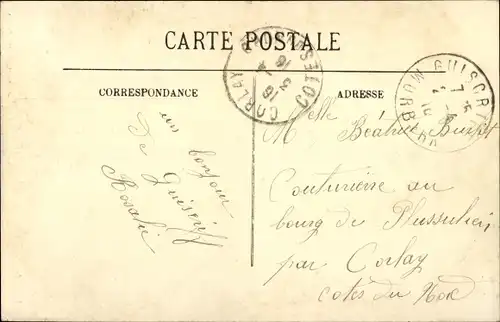 CARTE POSTALE
CORRESPONDANCE
ADRESSE
CORLAY
GUISCRIFF
MORBIHAN
un bonjour
de Guiscriff
Rosalie
Melle Béatrice
Couturière au
bourg de Plussulien
par Corlay
Cotes du Nord